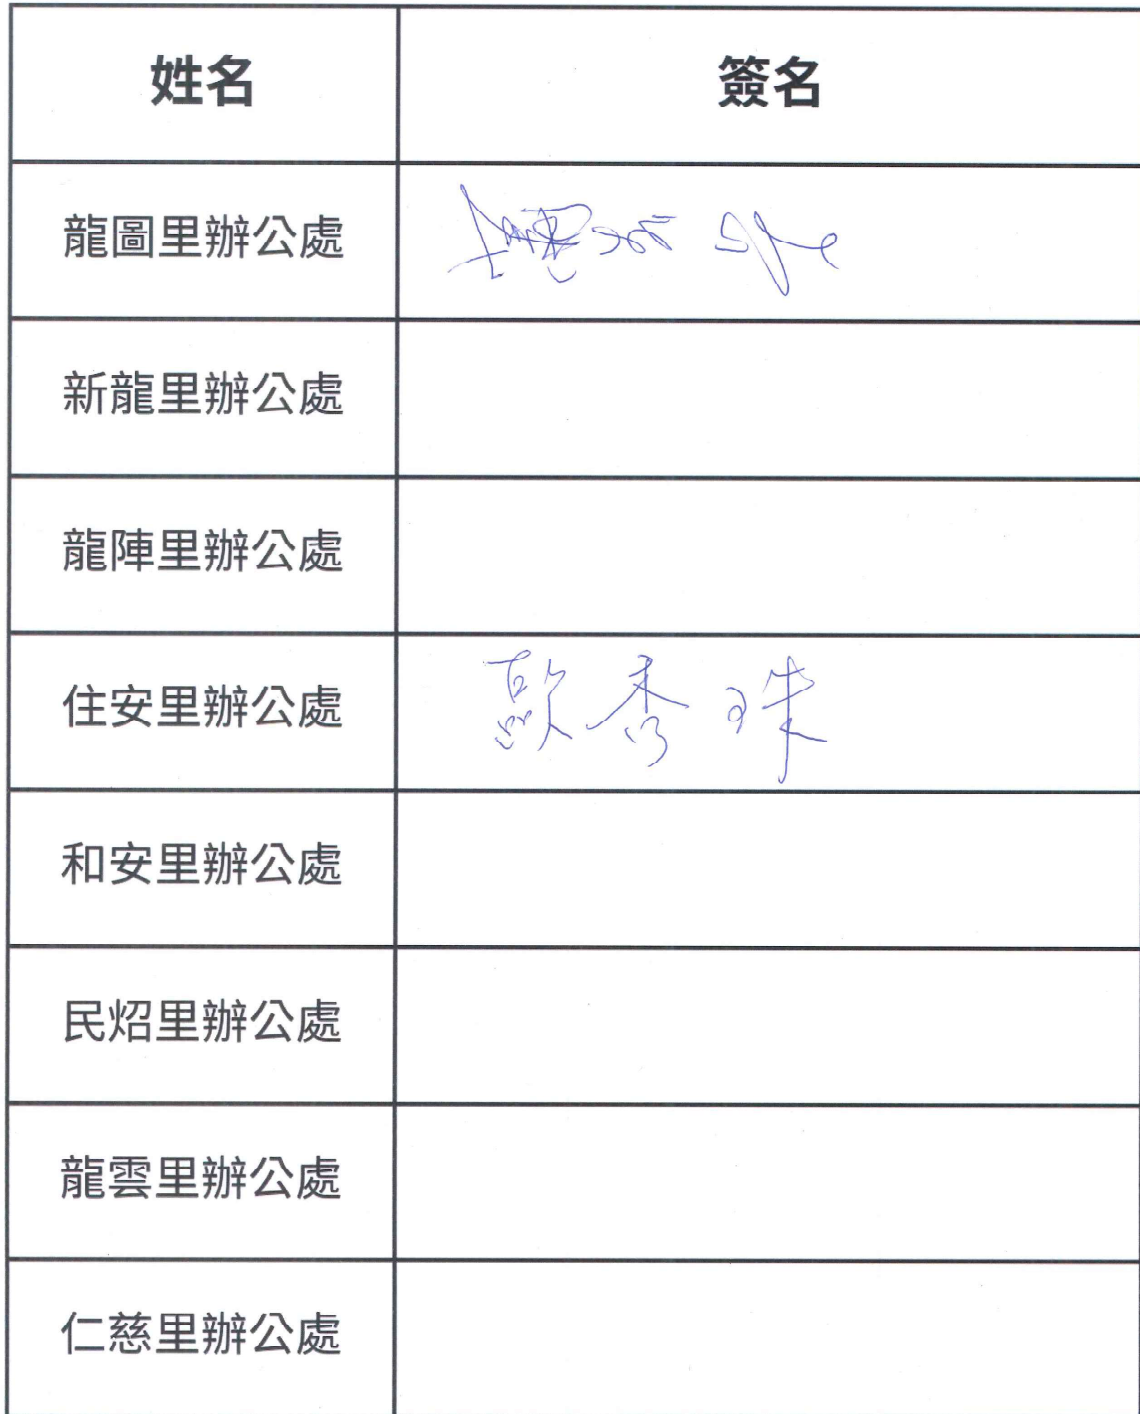 姓名 簽名
龍圖里辦公處
新龍里辦公處
龍陣里辦公處
住安里辦公處 歐秀珠
和安里辦公處
民炤里辦公處
龍雲里辦公處
仁慈里辦公處